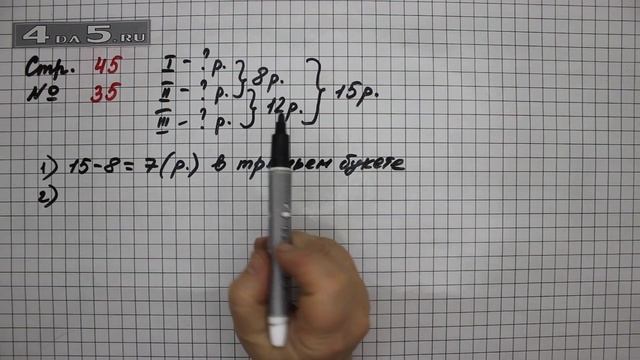 4 DA 5.RU
Стр. 45
№ 35
I - ? р.
II - ? р.
III - ? р.
8р.
12р.
15р.
1) 15-8=7(р.) в третьем букете
2)